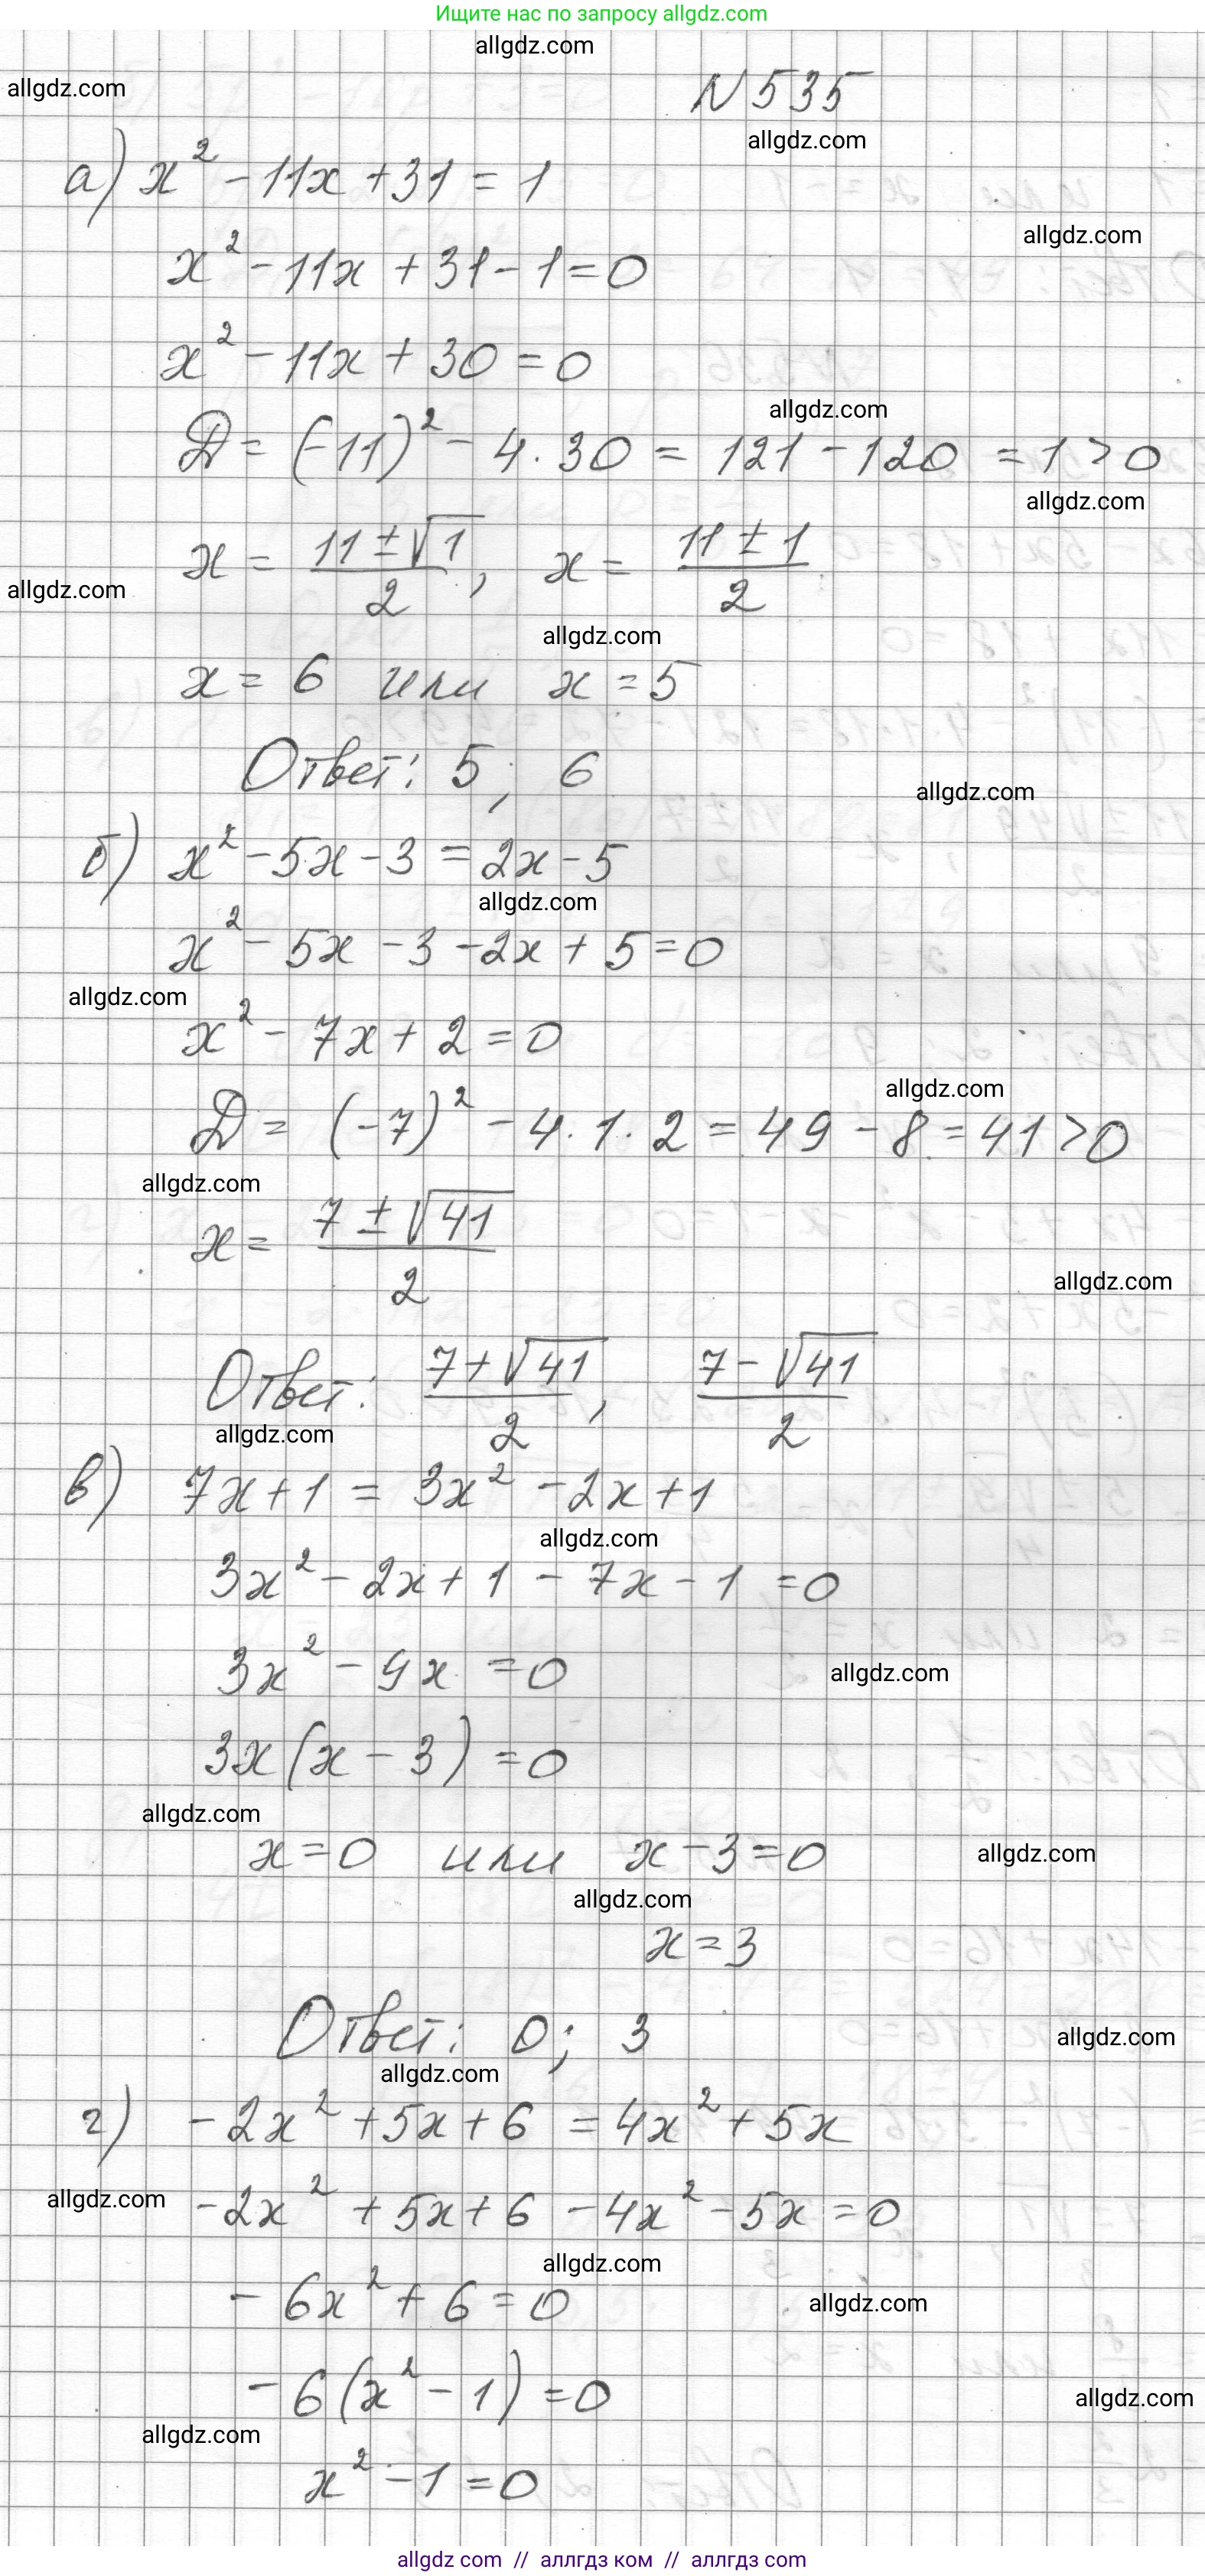 Ищите нас по запросу allgdz.com
allgdz.com
allgdz.com
N 535
allgdz.com
а) x² - 11x + 31 = 1
allgdz.com
x² - 11x + 31 - 1 = 0
x² - 11x + 30 = 0
allgdz.com
D = (-11)² - 4 · 30 = 121 - 120 = 1 > 0
allgdz.com
x = (11 ± √1)/2, x = (11 ± 1)/2
allgdz.com
allgdz.com
x = 6 или x = 5
Ответ: 5; 6
allgdz.com
б) x² - 5x - 3 = 2x - 5
allgdz.com
x² - 5x - 3 - 2x + 5 = 0
allgdz.com
x² - 7x + 2 = 0
allgdz.com
D = (-7)² - 4 · 1 · 2 = 49 - 8 = 41 > 0
allgdz.com
x = (7 ± √41)/2
allgdz.com
Ответ: (7 + √41)/2, (7 - √41)/2
allgdz.com
в) 7x + 1 = 3x² - 2x + 1
allgdz.com
3x² - 2x + 1 - 7x - 1 = 0
3x² - 9x = 0
allgdz.com
3x(x - 3) = 0
allgdz.com
x = 0 или x - 3 = 0
allgdz.com
allgdz.com
x = 3
Ответ: 0; 3
allgdz.com
allgdz.com
г) -2x² + 5x + 6 = 4x² + 5x
allgdz.com
-2x² + 5x + 6 - 4x² - 5x = 0
allgdz.com
- 6x² + 6 = 0
allgdz.com
- 6(x² - 1) = 0
allgdz.com
allgdz.com
x² - 1 = 0
allgdz com // аллгдз ком // аллгдз com